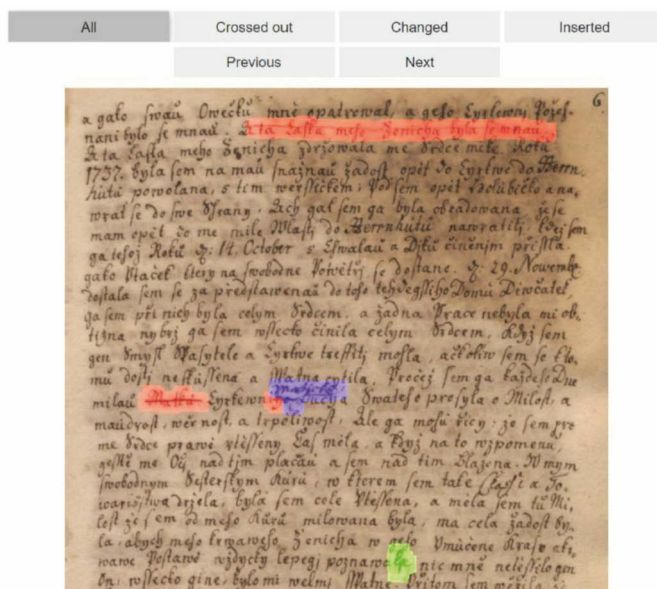 All Crossed out Changed Inserted
Previous Next
6.
a gako swau Owečku mně opatrowal, a geho Cyrkewni Požeh-
nani bylo se mnau. A ta Laska meho Ženicha byla se mnau.
A ta Laska meho Ženicha zdržowala me Srdce mile. Roku
1737. byla sem na mau snažnau žadost opět do Cyrkwe do Herrn-
hutu powolana, s tem weršičkem: Pod sem opět Holubičko a na-
wrat se do swe Skrany. Ach gak sem ga byla obradowana že se
mam opět do me mile Wlasti do Herrnhutu nawratiti, kdež sem
ga tehož Roku d: 14. October s Chwalau a Diků činěnim přišla.
gako Ptaček ktery na swobodne Powětřj se dostane. d: 29. Novembr.
dostala sem se za představenau do toho tehdegssiho Domu Diwčateč,
ga sem při nich byla celym Srdcem, a žadna Prace nebyla mi ob-
tižna nybrž ga sem wssecko činila celym Srdcem, Když sem
gen Smysl Spasytele a Cyrkwe treffiti mohla, ačkoliw sem se k to-
mu dosti neskussena a sspatna cytila. Pročež sem ga každeho Dne
milau Matku Cyrkewni Ducha Swateho prosyla o Milost, a
maudrost, wěrnost, a trpeliwost, Ale ga mohu řicy, že sem pro
me Srdce prawě
Čas měla, a když na to wzpomenu,
gesstě me Oči nad tjm plačau a sem nad tim Blažena. W mym
swobodnym Sesterskym Kůru, w kterem sem take Classi a To-
warišstwa držela, byla sem cele
a měla sem tu Mi-
lost že sem od meho Kůru milowana byla, ma cela žadost by-
la, abych meho trwaweho Ženicha w geho Umučene Krase a kr-
wawe Postawě wždycky lepegi poznawala, nic mně
gen
On, wssecko gine, bylo mi welmi sspatne. Přitom sem
že